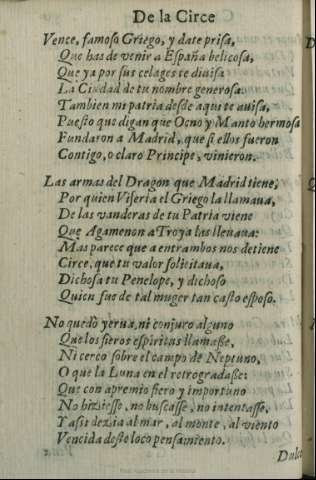 De la Circe
Vence, famoso Griego, y date prisa,
Que has de venir a España belicosa,
Que ya por sus celages se diuisa
La Ciudad de tu nombre generosa.
Tambien mi patria desde aqui te auisa,
Puesto que digan que Ocno y Manto hermosa
Fundaron a Madrid, que si ellos fueron
Contigo, o claro Principe, vinieron.
Las armas del Dragon que Madrid tiene,
Por quien Viseria el Griego la llamaua,
De las vanderas de tu Patria viene
Que Agamenon a Troya las lleuaua:
Mas parece que a entrambos nos detiene
Circe, que tu valor solicitaua,
Dichosa tu Penelope, y dichoso
Quien fue de tal muger tan casto esposo.
No quedò yerua, ni conjuro alguno
Que los fieros espiritus llamasse,
Ni cerco sobre el campo de Neptuno,
O que la Luna en el retrogradasse:
Que con apremio fiero y importuno
No hiziesse, no buscasse, no intentasse,
Y assi dezia al mar, al monte, al viento
Vencida deste loco pensamiento.
Dulce
Real Academia de la Historia